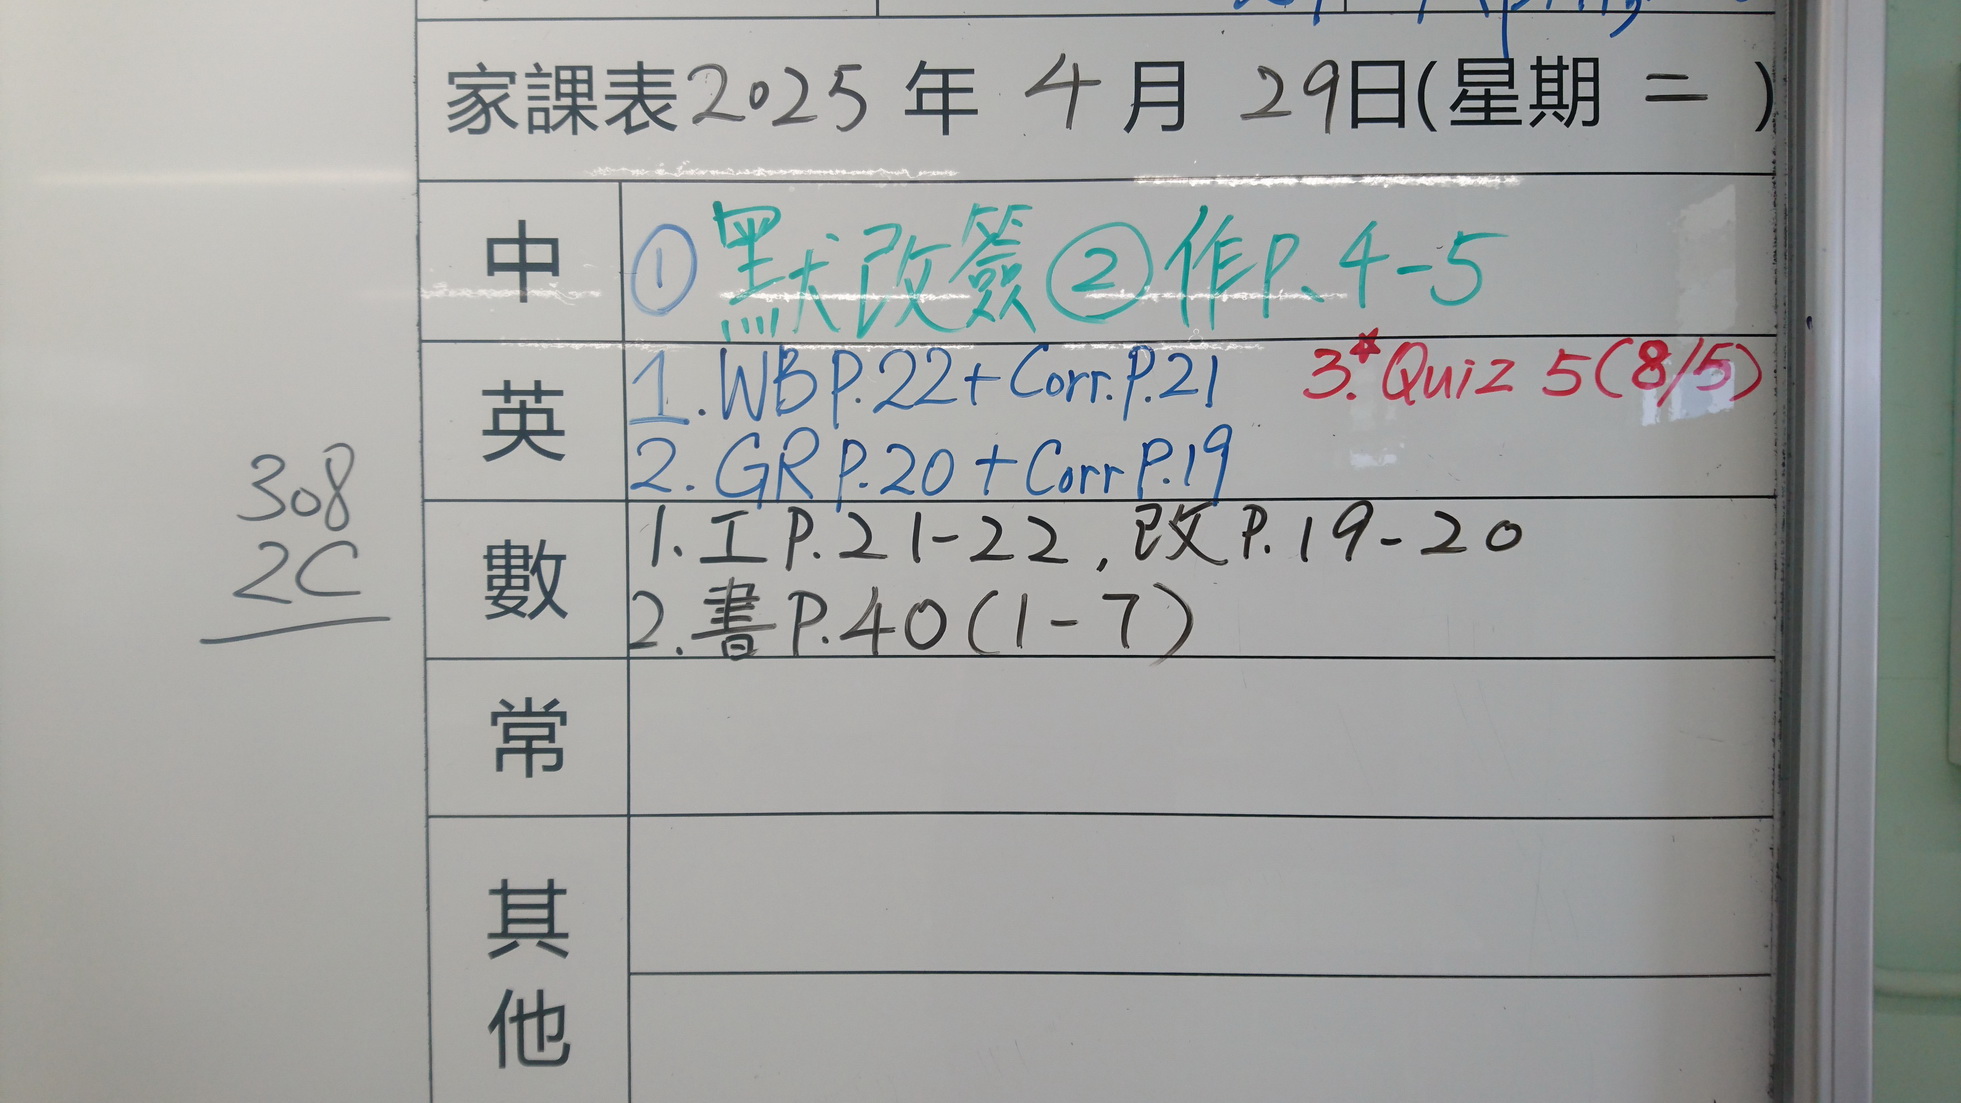 家課表2025年4月29日(星期二)
中 ①默改簽②作P.4-5
英 1.WB P.22+Corr.P.21 3.*Quiz 5(8/5)
2.GR P.20+Corr P.19
數 1.工P.21-22,改P.19-20
2.書P.40(1-7)
常
其他
308
2C